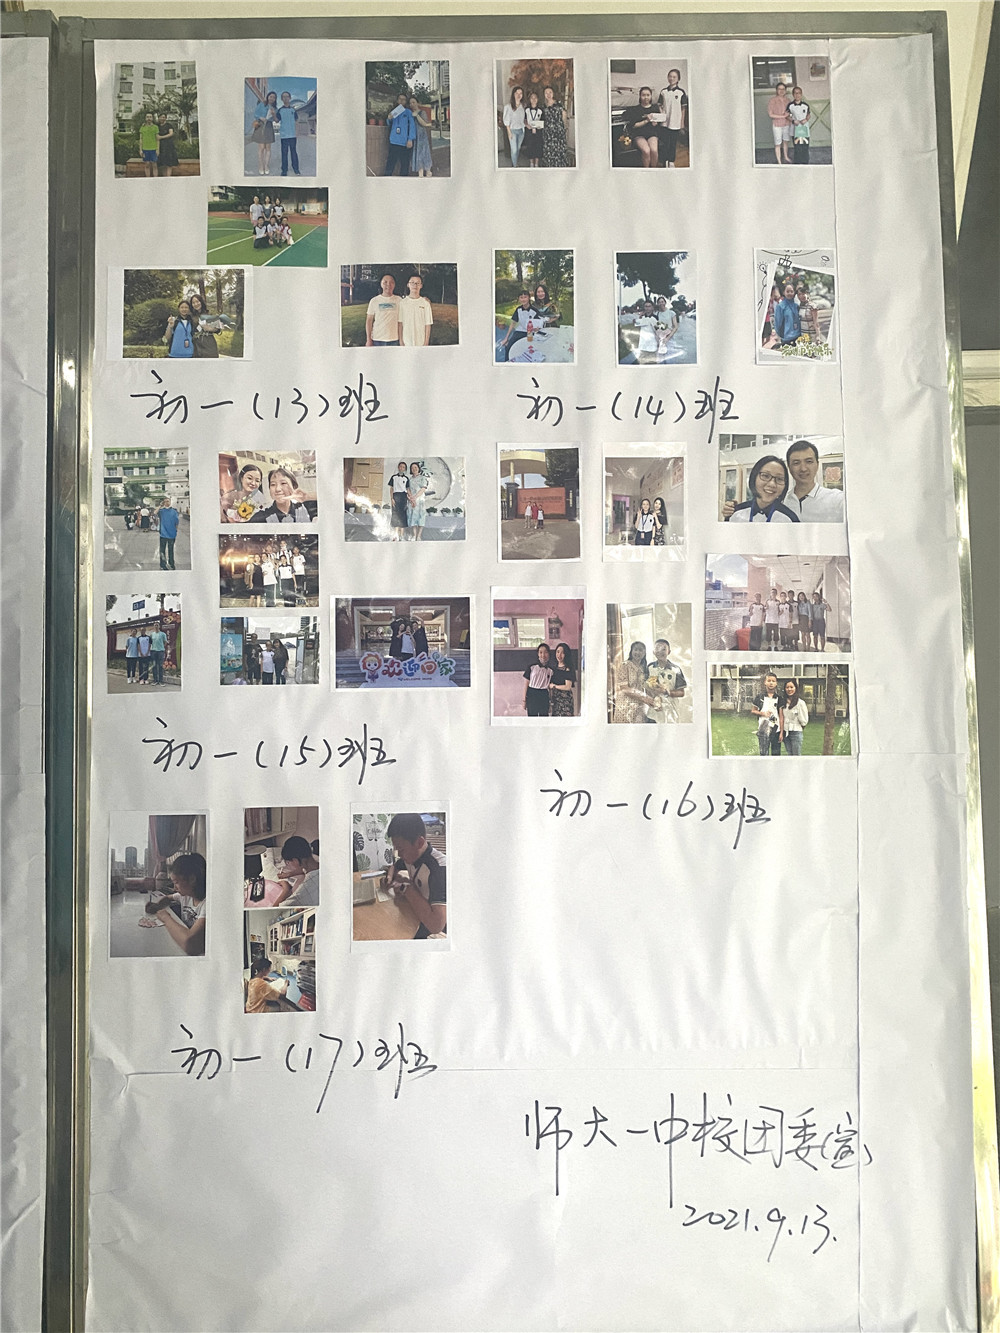 初一(13)班
初一(14)班
欢迎回家
初一(15)班
初一(16)班
初一(17)班
师大一中校团委(宣)
2021.9.13.